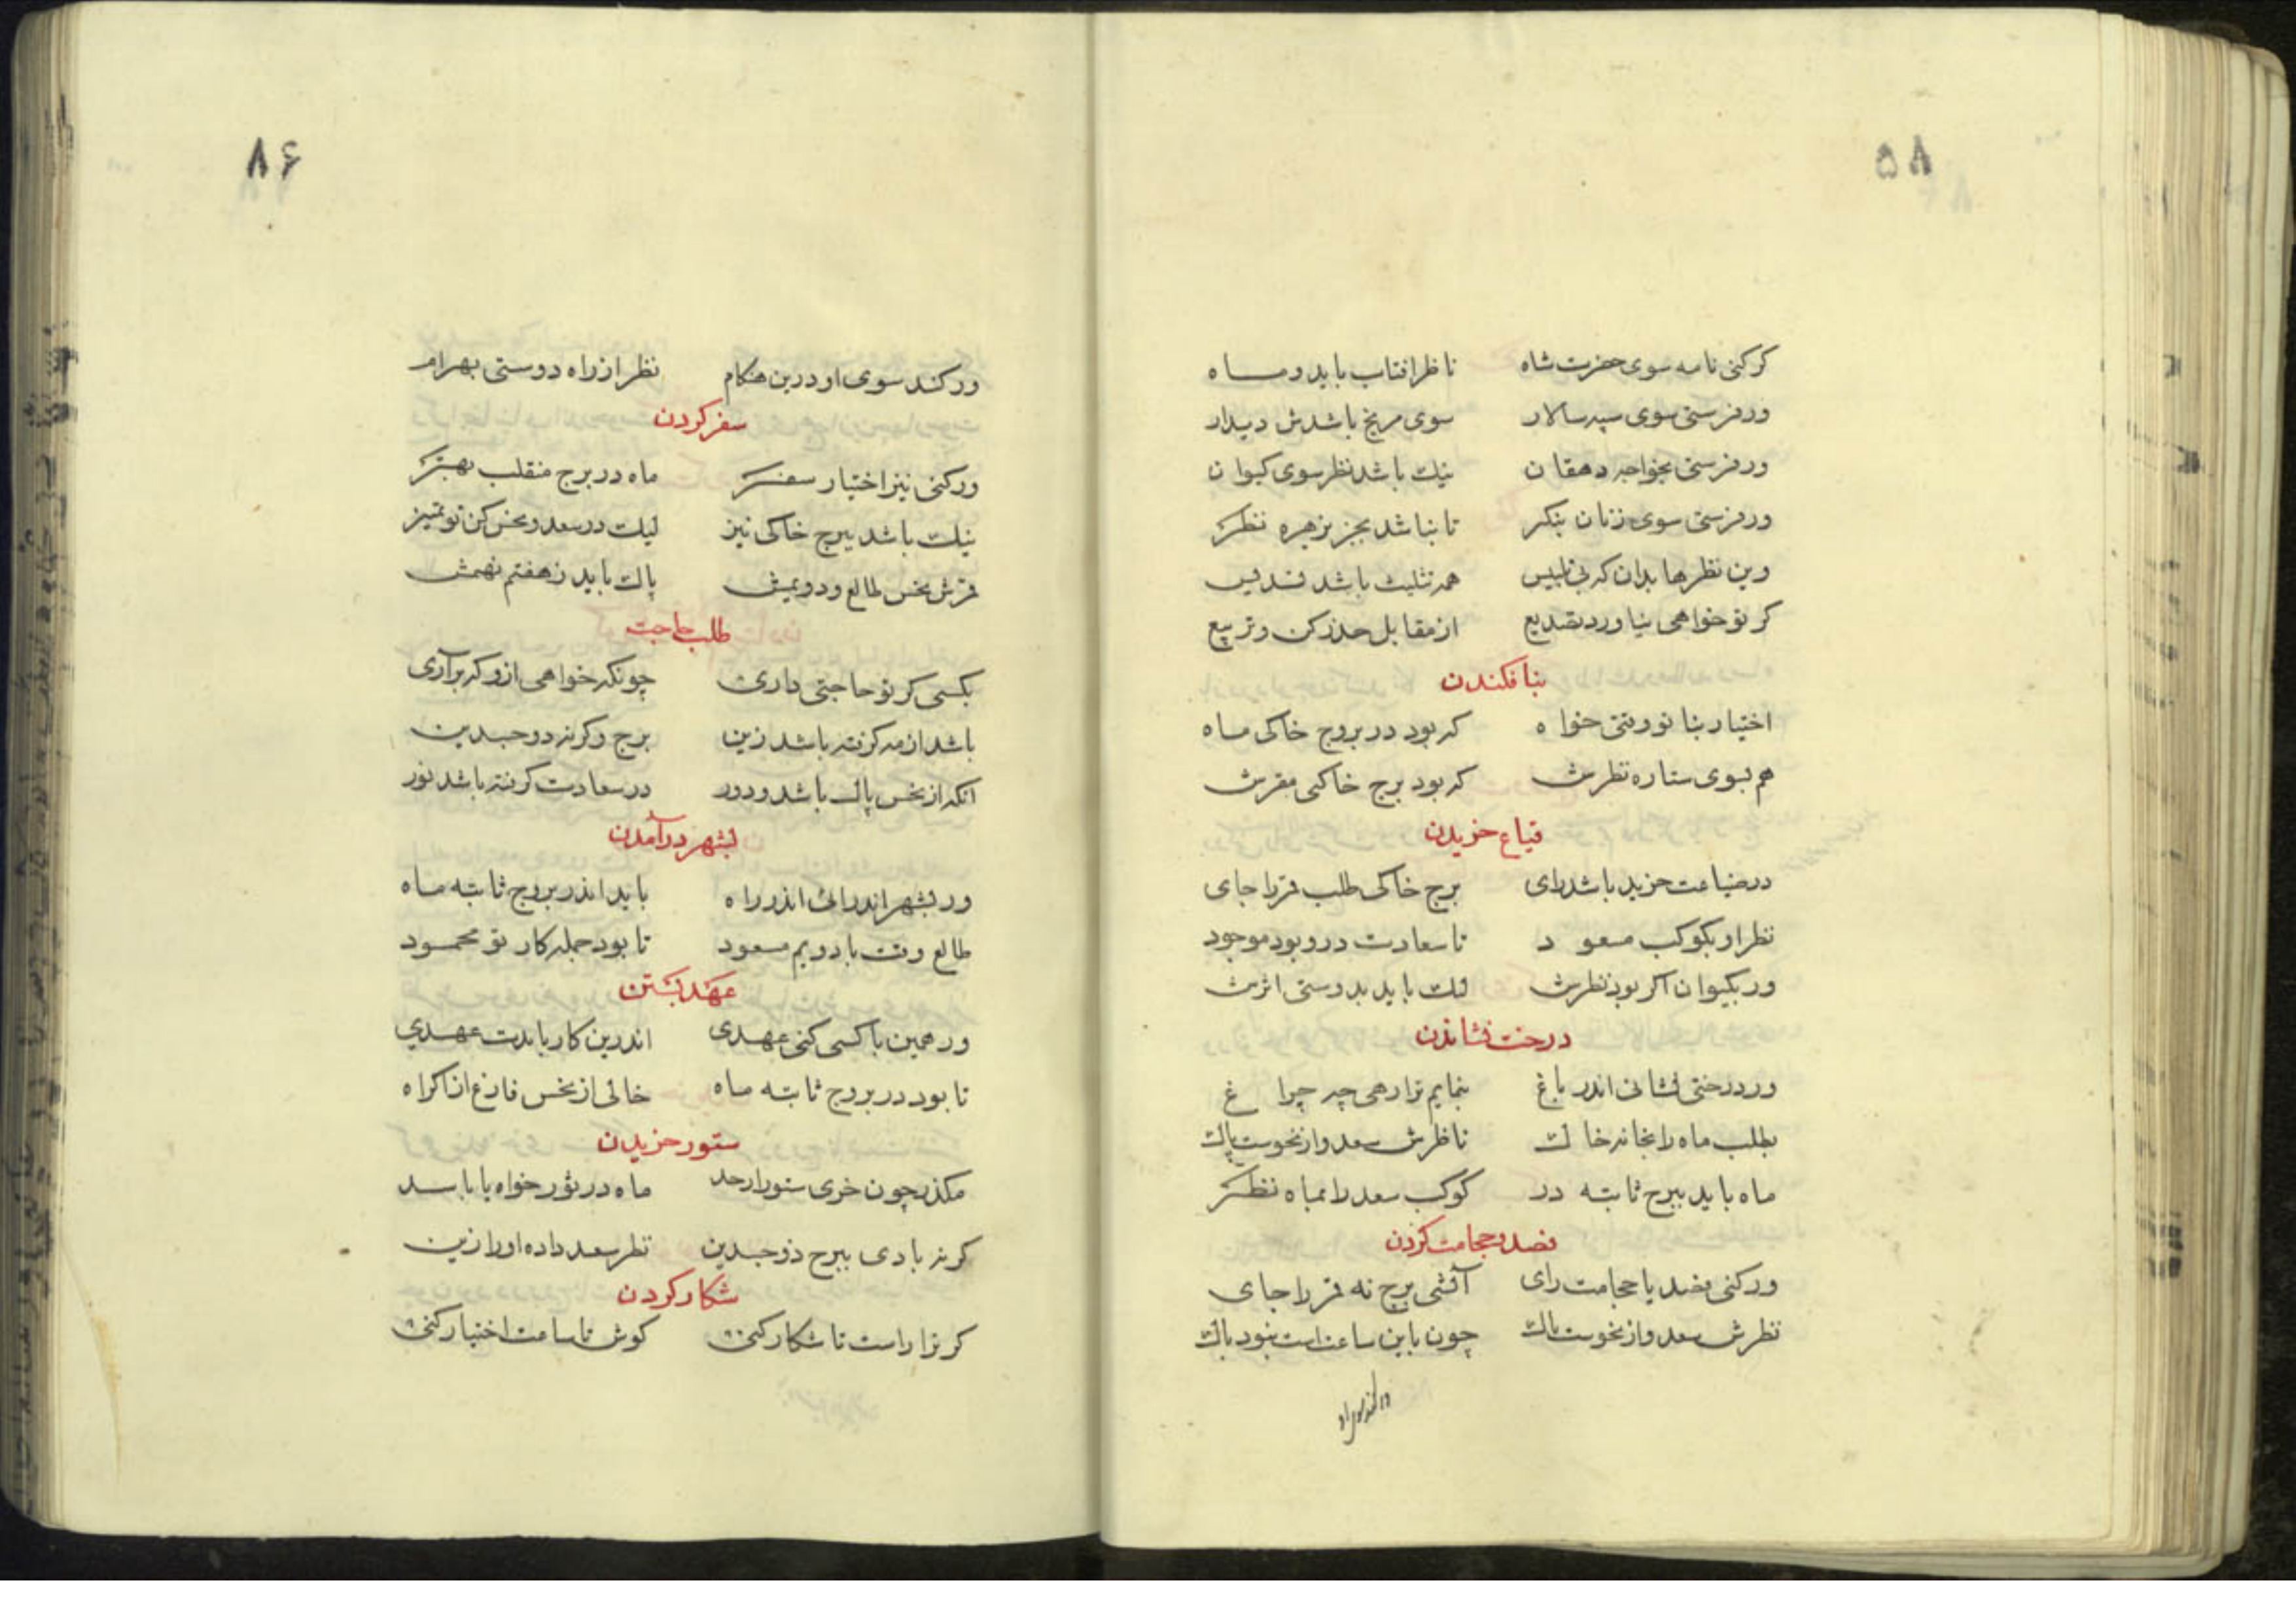 ۸۵
کر کنی نامه سوی حضرت شاه ناظر افتاب باید و ماه
ور فرستی سوی سپه سالار سوی مریخ باشدش دیدار
ور فرستی بخواجه دهقان نیك باشد نظر سوی کیوان
ور فرستی سوی زنان بنکر تا نباشد بجز بزهره نظر
وین نظرها بدان که بی تلبیس همه تثلیث باشد تسدیس
کر تو خواهی نیاورد تصدیع از مقابل حذر کن و تربیع
بنا فکندن
اختیار بنا تو وقتی خواه که بود در بروج خاکی ماه
هم بسوی ستاره نظرش که بود برج خاکی مقرش
ضیاع خریدن
در ضیاعت خرید باشد رای برج خاکی طلب قمر را جای
نظر او بکوکب مسعود تا سعادت درو بود موجود
ور بکیوان اکر بود نظرش لیك باید بدوستی اثرش
درخت نشاندن
ور درختی نشانی اندر باغ بنمایم ترا رهی چو چراغ
بطلب ماه را بخانه خاك ناظرش سعد و از نحوست پاك
ماه باید ببرج ثابته در کوکب سعد را بماه نظر
فصد و حجامت کردن
ور کنی فصد یا حجامت رای آتشی برج نه قمر را جای
نظرش سعد و از نحوست پاك چون باین ساعتست نبود باك
ور کند سوی او
۸۶
ور کند سوی او درین هنکام نظر از راه دوستی بهرام
سفر کردن
ور کنی نیز اختیار سفر ماه در برج منقلب بهتر
نیك باشد ببرج خاکی نیز لیك در سعد و نحس کن تو تمیز
قرش نحس طالع و دویمش پاك باید ز هفتم نهمش
طلب حاجت
بکسی کر تو حاجتی داری چونکه خواهی ازو که برآری
باشد از مه کرفته باشد زین برج وکرنه دو جسدین
انکه از نحس پاك باشد و دور در سعادت کرفته باشد نور
بشهر درآمدن
ور بشهر اندر ائی اندر راه باید اندر بروج ثابته ماه
طالع وقت با دویم مسعود تا بود جمله کار تو محمود
عهد بستن
ور همین با کسی کنی عهدی اندرین کار بایدت عهدی
تا بود در بروج ثابته ماه خالی از نحس فارغ از اکراه
ستور خریدن
مکذر چون خری ستور از حد ماه در ثور خواه یا باسد
کرنه بادی ببرج ذو جسدین نظر سعد داده او را زین
شکار کردن
کر ترا راست تا شکار کنی کوش تا ساعت اختیار کنی